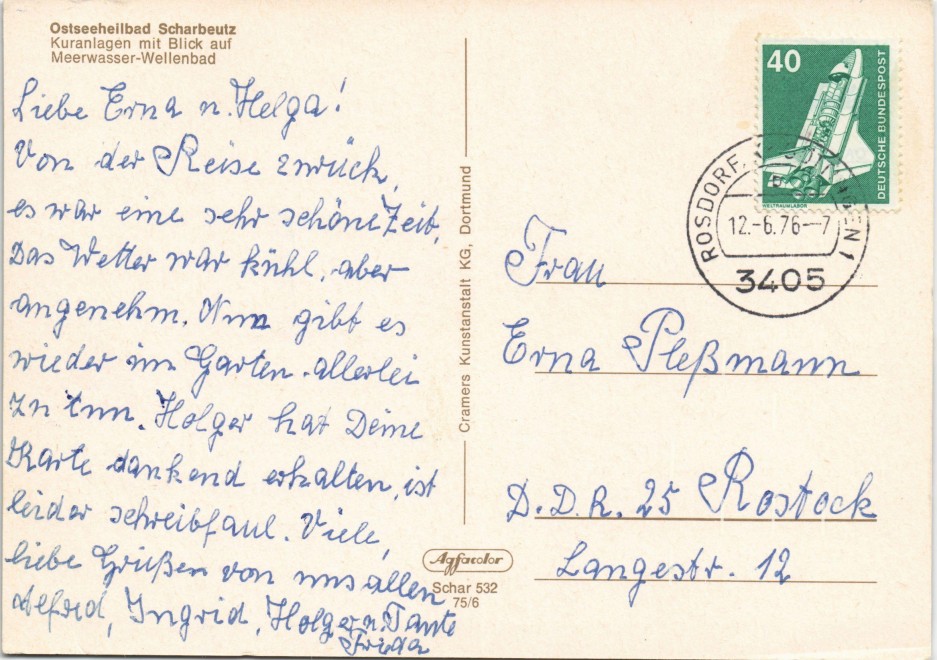 Ostseeheilbad Scharbeutz
Kuranlagen mit Blick auf
Meerwasser-Wellenbad
Liebe Erna u. Helga!
Von der Reise zurück,
es war eine sehr schöne Zeit,
Das Wetter war kühl, aber
angenehm. Nun gibt es
wieder im Garten allerlei
zu tun. Holger hat Deine
Karte dankend erhalten, ist
leider schreibfaul. Viele,
liebe Grüßen von uns allen
Alfred, Ingrid, Holger u. Tante
Frieda
Cramers Kunstanstalt KG, Dortmund
Agfacolor
Schar 532
75/6
40
DEUTSCHE BUNDESPOST
WELTRAUMLABOR
ROSDORF 1
12.-6.76--7
3405
Frau
Erna Pleßmann
D.D.R. 25 Rostock
Langestr. 12